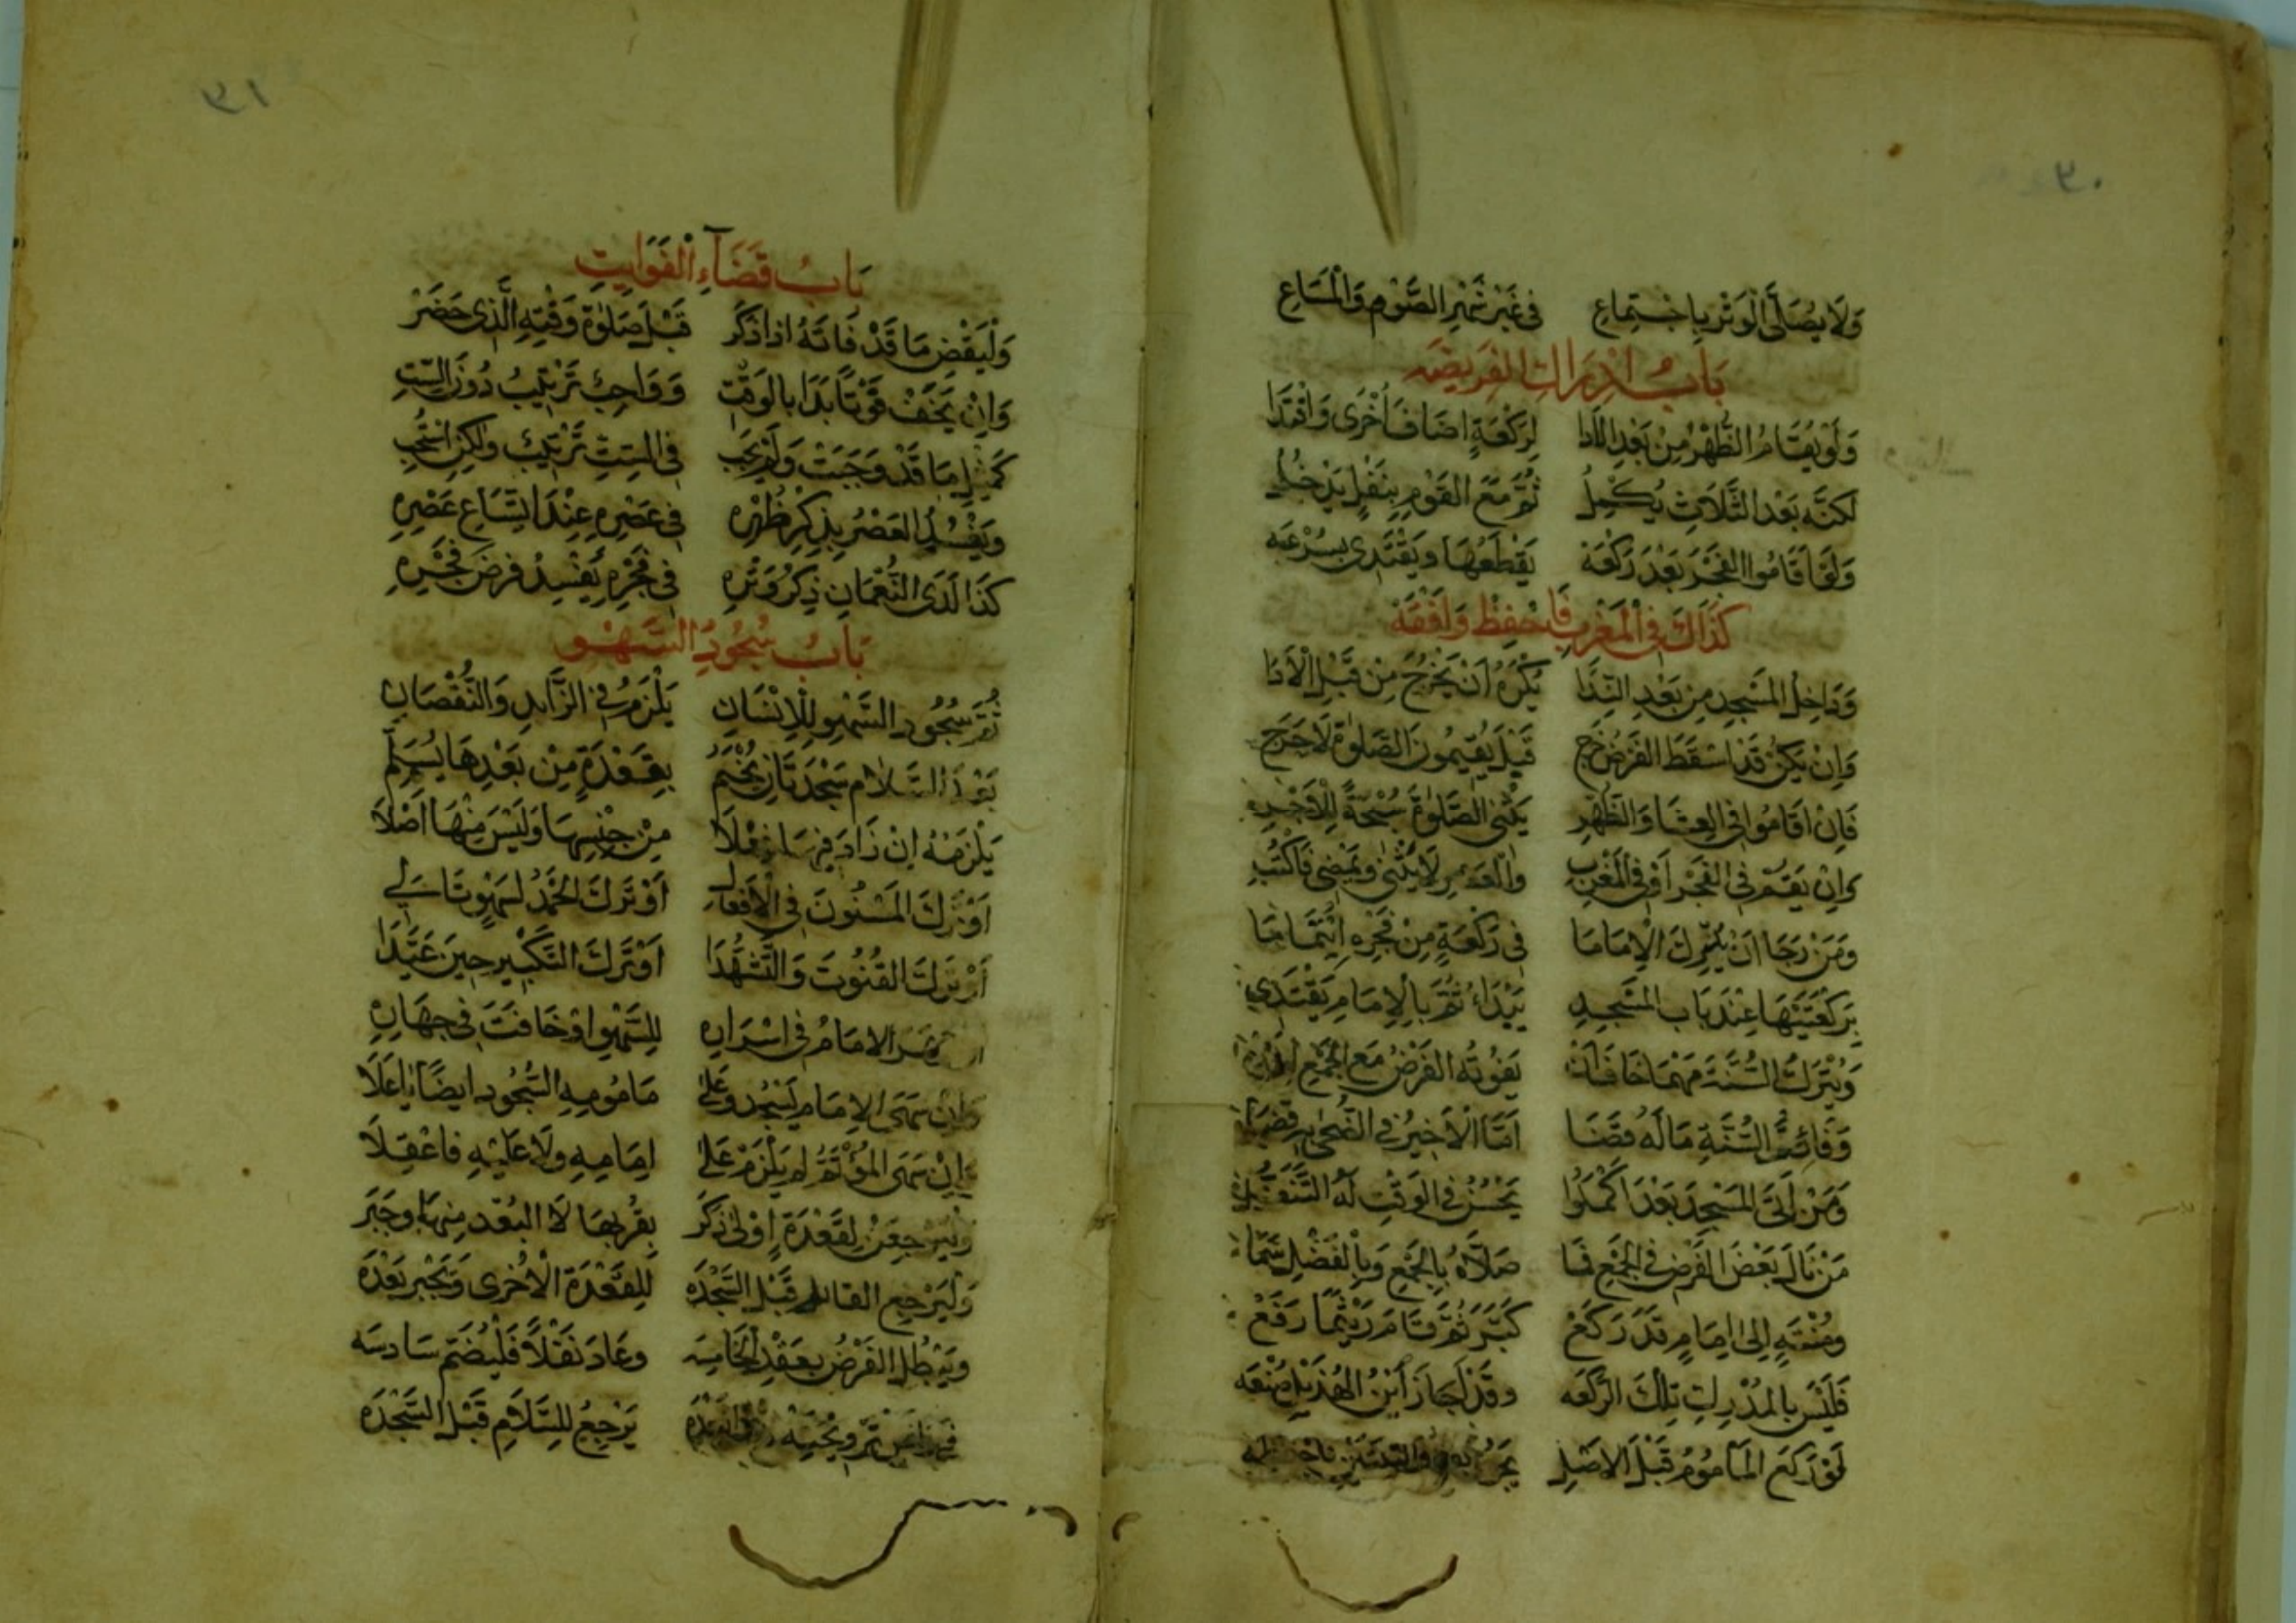 ٣٠
وَلَا يُصَلَّى الْوَتْرُ بِاجْتِمَاعِ فِي غَيْرِ شَهْرِ الصَّوْمِ وَالْمَسَاعِ
بَابُ إِدْرَاكِ الْفَرِيضَه
وَلَوْ يُقَامُ الظُّهْرُ مِنْ بَعْدِ الْأَدَا لِرَكْعَةٍ اضَافَ أُخْرَى وَاقْتَدَا
لَكِنَّه بَعْدَ الثَّلَاثِ يُكْمِلُ ثُمَّ مَعَ الْقَوْمِ بِنَفْلٍ يَدْخُلُ
وَلَوْ اَقَامُوا الْفَجْرَ بَعْدَ رَكْعَهْ يَقْطَعُهَا وَيَقْتَدِي بِسُرْعَه
كَذَاكَ فِي الْمَغْرِبِ فَاحْفَظْ وَافْقَهْ
وَدَاخِلُ الْمَسْجِدِ مِنْ بَعْدِ النِّدَا يُكْرَهُ أَنْ يَخْرُجَ مِنْ قَبْلِ الْأَدَا
وَإِنْ يَكُنْ قَدْ أَسْقَطَ الْفَرْضَ خَرَجْ قَبْلَ يُقِيمُونَ الصَّلٰوةَ لَا حَرَجْ
فَإِنْ اَقَامُوا فِي الْعِشَا وَالظُّهْرِ الصَّلٰوةَ سُبْحَةً لِلْأَجْرِ
وَإِنْ يُقَمْ فِي الْفَجْرِ أَوْ فِي الْمَغْرِبِ وَالْعَصْرِ لَا يَثْنِى وَيَمْضِى فَاكْتُبِ
وَمَنْ رَجَا أَنْ يُدْرِكَ الْإِمَامَا فِي رَكْعَةٍ مِنْ فَجْرِهِ ائْتِمَامَا
بِرَكْعَتَيْهَا عِنْدَ بَابِ الْمَسْجِدِ يَبْدَاءُ ثُمَّ بِالْإِمَامِ يَقْتَدِي
وَيُتْرَكُ السُّنَّةَ مَهْمَا خَافَ أَنْ يَفُوتُهُ الْفَرْضُ مَعَ الْجَمْعِ
وَفَائِتُ السُّنَّةِ مَا لَهُ قَضَا اَمَّا الْأَخِيرُ فِي الضُّحٰى
وَمَنْ اَتَى الْمَسْجِدَ بَعْدَ اَكْمَلُوا يَحْسُنُ فِي الْوَقْتِ لَهُ التَّنَفُّلُ
مَنْ نَالَ بَعْضَ الْفَرْضِ فِي الْجَمْعِ فَمَا صَلَّاهُ بِالْجَمْعِ وَبِالْفَضْلِ سَمَا
وَمُنْتَهٍ اِلَى اِمَامٍ قَدْ رَكَعْ كَبَّرَ ثُمَّ قَامَ رَيْثَمَا رَفَعْ
فَلَيْسَ بِالْمُدْرِكِ تِلْكَ الرَّكْعَه وَقَدْ اَجَازَ ابْنُ الْهُذَيْلِ صُنْعَه
لَوْ رَكَعَ الْمَأْمُومُ قَبْلَ الْاَصْلِ
٣١
بَابُ قَضَآءِ الْفَوَايِتِ
وَلْيَقْضِ مَا قَدْ فَاتَهُ اِذَا ذَكَرْ قَبْلَ صَلٰوةِ وَقْتِهِ الَّذِى حَضَرْ
وَإِنْ يَخَفْ فَوْتًا بَدَا بِالْوَقْتِ وَوَاجِبٌ تَرْتِيبُ دُونَ السِّتِ
كَمِثْلِ مَا قَدْ وَجَبَتْ وَلَمْ يَجِبْ فِي السِّتِّ تَرْتِيبٌ وَلٰكِنْ اسْتُحِبْ
وَيَفْسُدُ الْعَصْرُ بِذِكْرِ ظُهْرِهِ فِي عَصْرِهِ عِنْدَ اتِّسَاعِ عَصْرِهِ
كَذَا لَدَى النُّعْمَانِ ذِكْرُ وَتْرِهِ فِي فَجْرِهِ يُفْسِدُ فَرْضَ فَجْرِهِ
بَابُ سُجُودِ السَّهْوِ
ثُمَّ سُجُودُ السَّهْوِ لِلْإِنْسَانِ يَلْزَمُ فِي الزَّايِدِ وَالنُّقْصَانِ
بَعْدَ السَّلَامِ سَجْدَتَانِ يَخْتِمُ بِقَعْدَةٍ مِنْ بَعْدِهَا يُسَلِّمُ
يَلْزَمُهُ اِنْ زَادَ فِيهَا فِعْلَا مِنْ جِنْسِهَا وَلَيْسَ مِنْهَا اَصْلَا
اَوْ تَرَكَ الْمَسْنُونَ فِي الْأَفْعَالِ اَوْ تَرَكَ الْحَمْدَ لِسَهْوٍ تَالِي
اَوْ تَرَكَ الْقُنُوتَ وَالتَّشَهُّدَا اَوْ تَرَكَ التَّكْبِيرَ حِينَ عَيَّدَا
الْإِمَامُ فِي اِسْرَارِهِ لِلسَّهْوِ اَوْ خَافَتَ فِي جِهَارِهِ
وَإِنْ سَهَى الْإِمَامُ يَسْجُدْ وَعَلَى مَأْمُومِهِ السُّجُودُ اَيْضًا
وَإِنْ سَهَى الْمُؤْتَمُّ لَمْ يَلْزَمْ عَلَى اِمَامِهِ وَلَا عَلَيْهِ فَاعْقِلَا
وَلْيَرْجِعَنْ لِقَعْدَةٍ اُوْلٰى ذَكَرْ بِقُرْبِهَا لَا الْبُعْدِ مِنْهَا وَجَبَرْ
وَلْيَرْجِعِ الْقَائِمُ قَبْلَ السَّجْدَه لِلْقَعْدَةِ الْأُخْرٰى وَيَجْبُرْ بَعْدَه
وَيَبْطُلُ الْفَرْضُ بِعَقْدِ الْخَامِسَه وَعَادَ نَفْلًا فَلْيَضُمَّ سَادِسَه
يَرْجِعُ لِلسَّلَامِ قَبْلَ السَّجْدَه